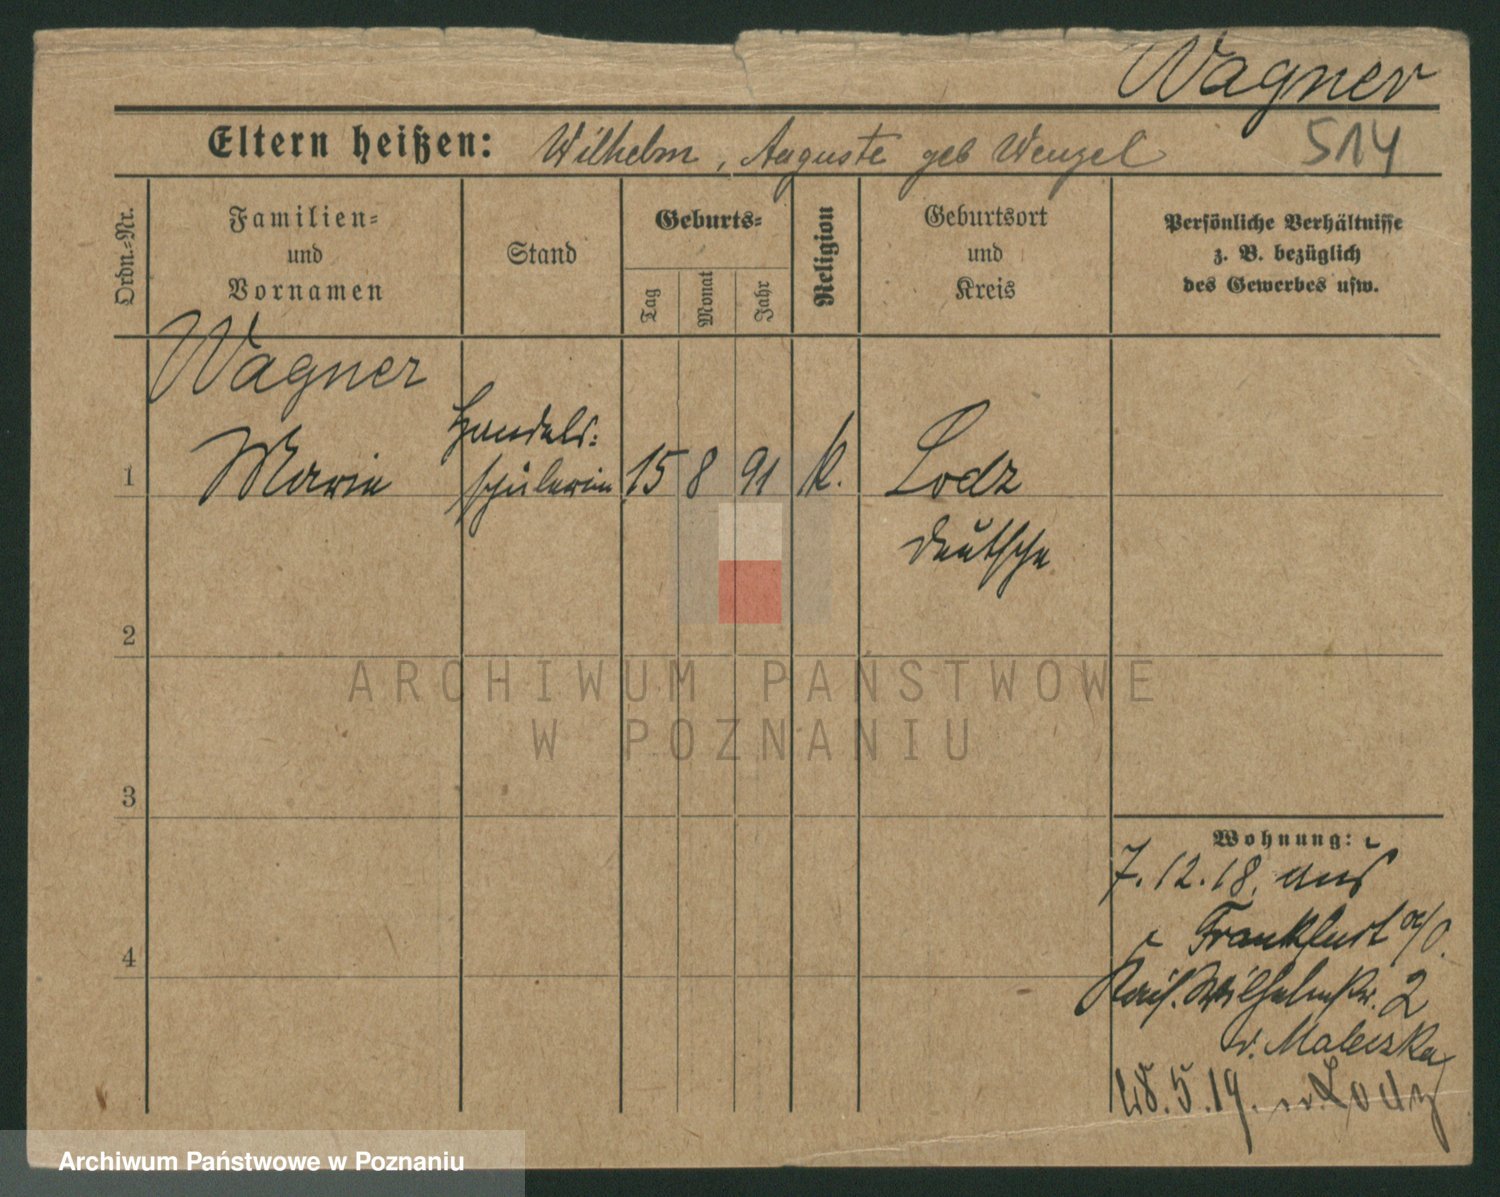 Wagner
Eltern heißen: Wilhelm, Auguste geb Wenzel 514
Ordn.=Nr.
Familien=
und
Vornamen
Stand
Geburts=
Tag
Monat
Jahr
Religion
Geburtsort
und
Kreis
Persönliche Verhältnisse
z. B. bezüglich
des Gewerbes usw.
Wagner
1 Marie
Handels=
schülerin
15 8 91 K. Lodz
Deutsche
2
ARCHIWUM PAŃSTWOWE
W POZNANIU
3
Wohnung:
7.12.18. aus
Frankfurt a/O.
Kais. Wilhelmstr. 2
4
5.19. n. Lodz
Archiwum Państwowe w Poznaniu